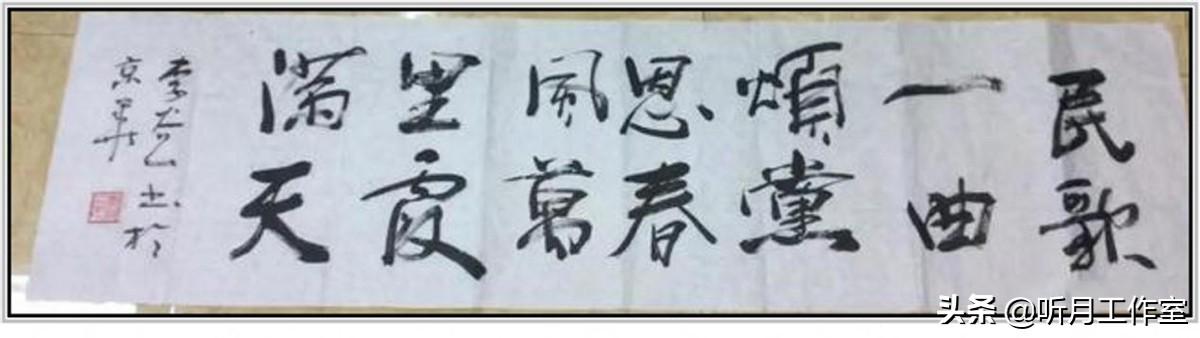 民歌
一曲
頌黨
恩春
風萬
里霞
滿天
李 书於
京華
头条 @听月工作室